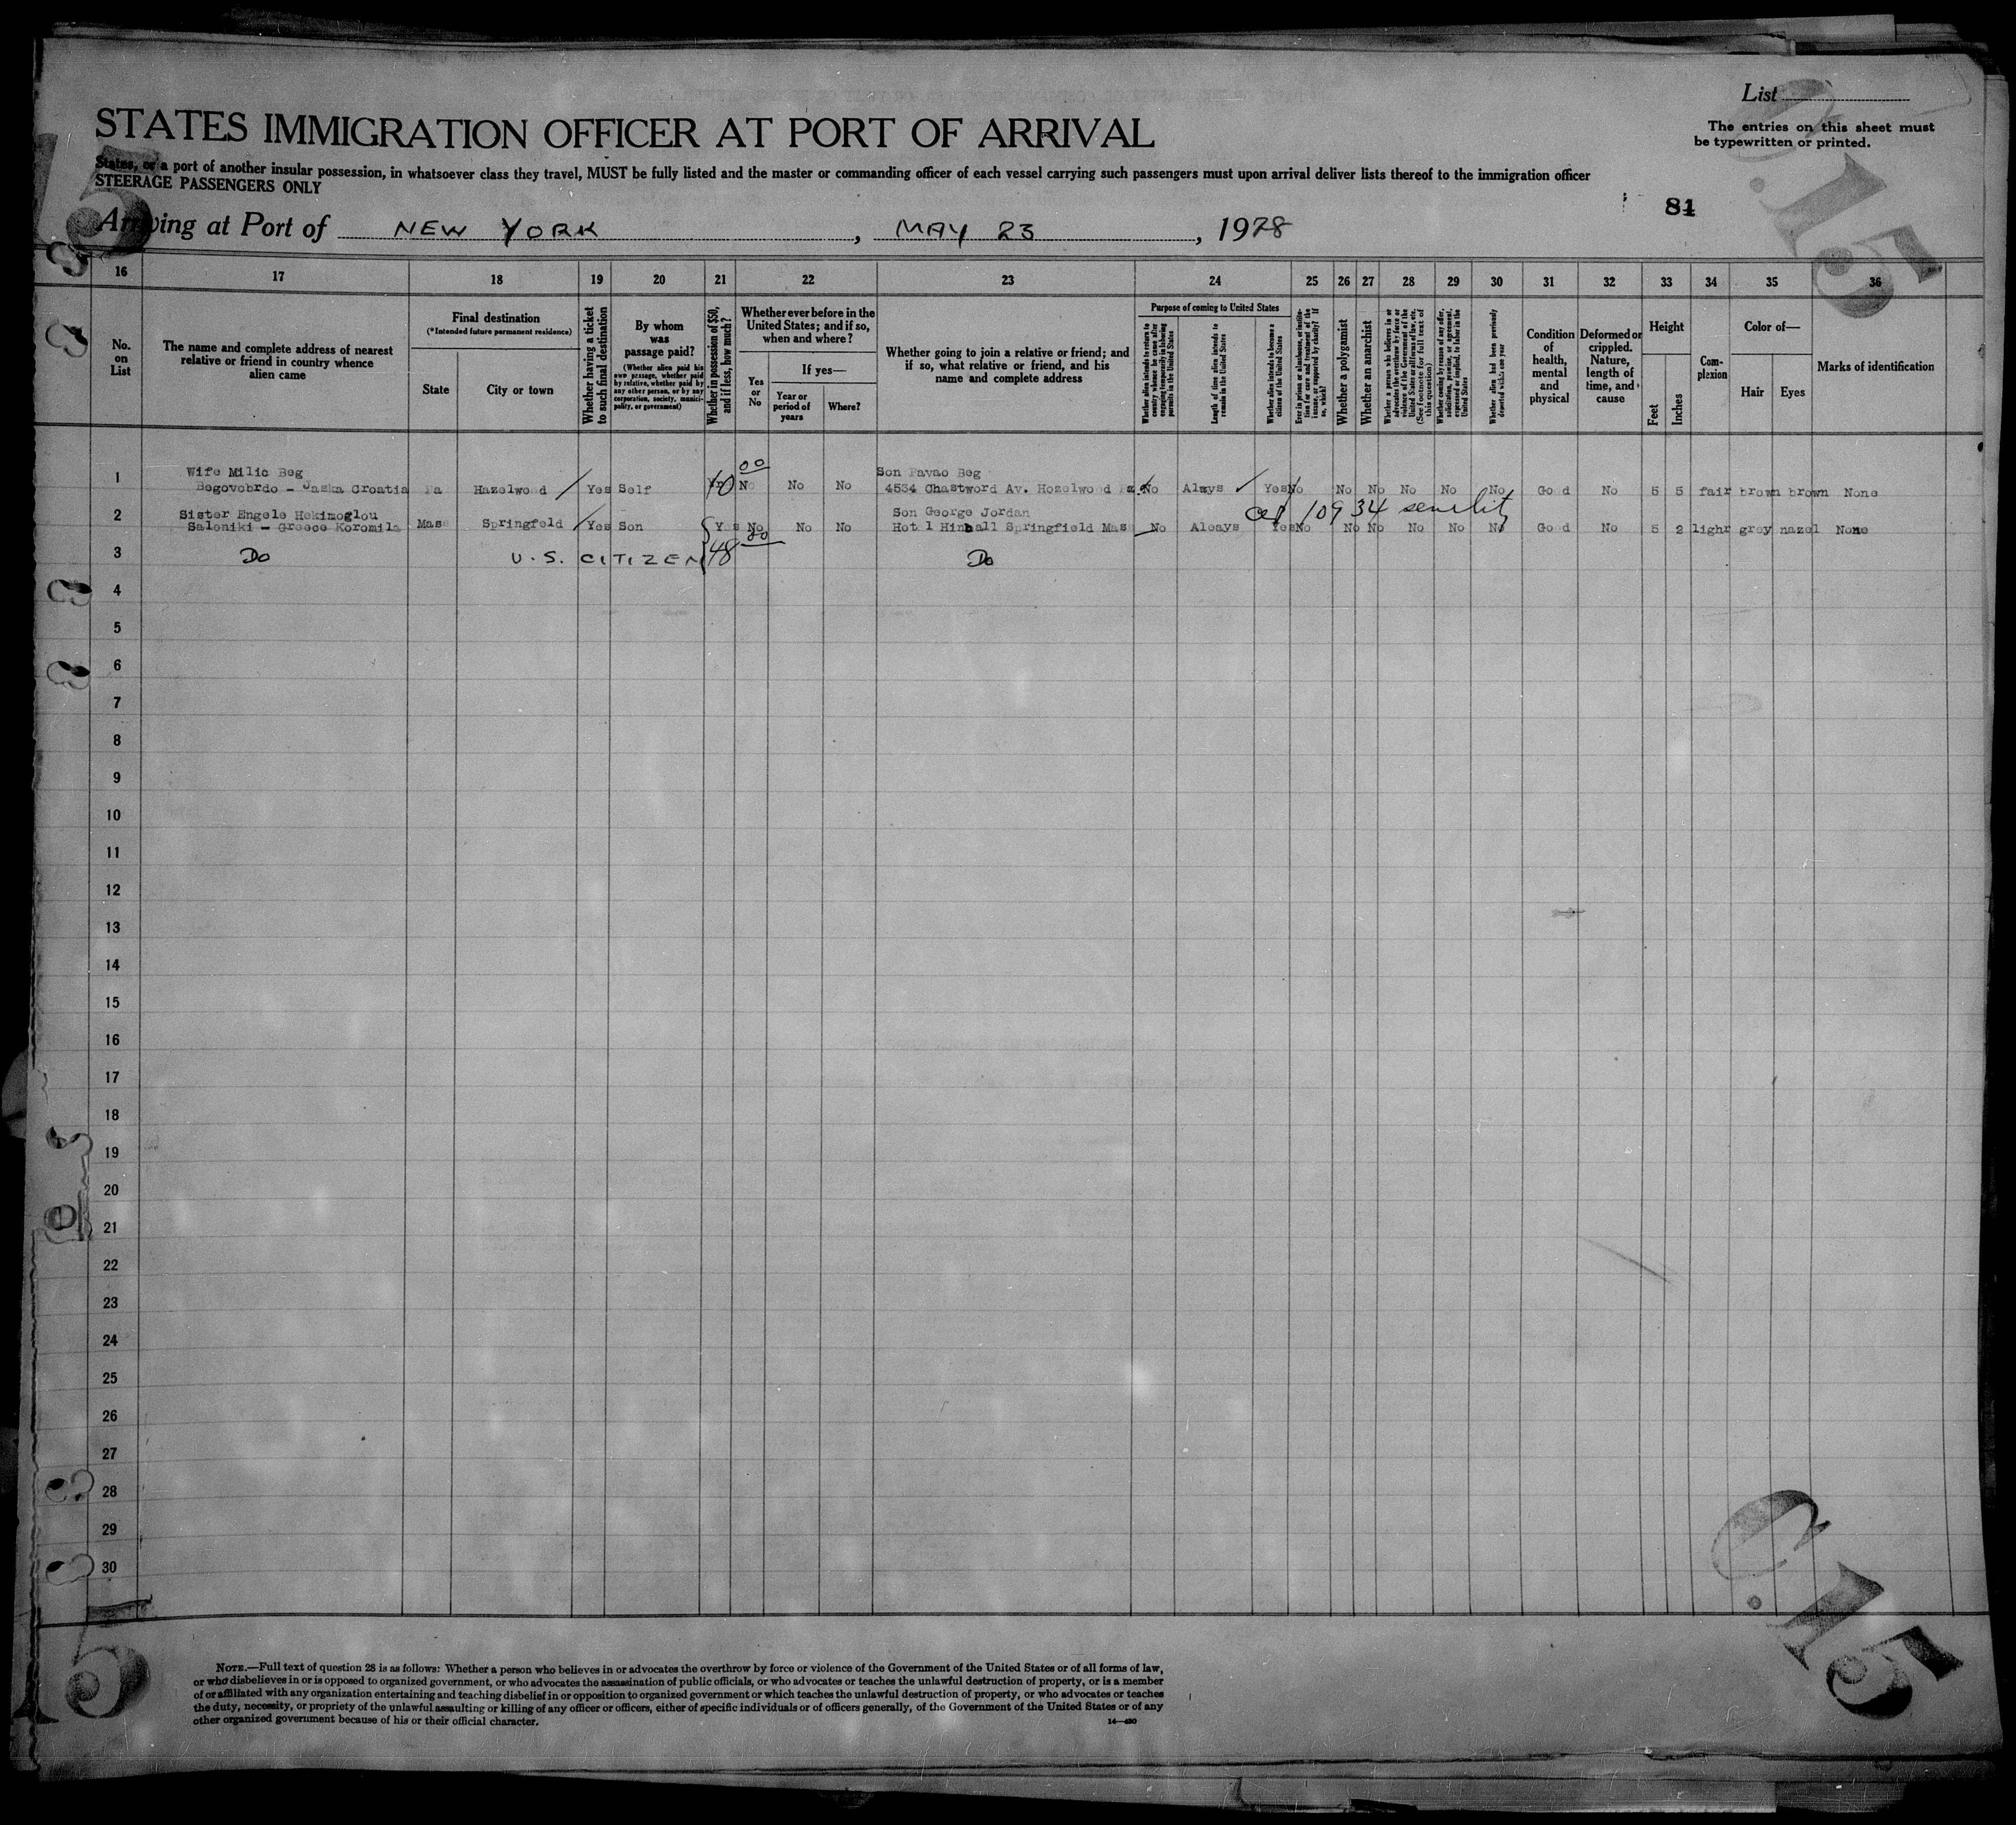 List
STATES IMMIGRATION OFFICER AT PORT OF ARRIVAL
The entries on this sheet must
be typewritten or printed.
States, or a port of another insular possession, in whatsoever class they travel, MUST be fully listed and the master or commanding officer of each vessel carrying such passengers must upon arrival deliver lists thereof to the immigration officer
STEERAGE PASSENGERS ONLY
81
Arriving at Port of NEW YORK, MAY 23, 1928
16 17 18 19 20 21 22 23 24 25 26 27 28 29 30 31 32 33 34 35 36
No.
on
List
The name and complete address of nearest
relative or friend in country whence
alien came
Final destination
(*Intended future permanent residence)
State
City or town
Whether having a ticket
to such final destination
By whom
was
passage paid?
(Whether alien paid his
own passage, whether paid
by relative, whether paid by
any other person, or by any
corporation, society, munici-
pality, or government)
Whether in possession of $50,
and if less, how much?
Whether ever before in the
United States; and if so,
when and where?
Yes
or
No
If yes—
Year or
period of
years
Where?
Whether going to join a relative or friend; and
if so, what relative or friend, and his
name and complete address
Purpose of coming to United States
Whether alien intends to return to
country whence he came after
engaging temporarily in laboring
pursuits in the United States
Length of time alien intends to
remain in the United States
Whether alien intends to become a
citizen of the United States
Ever in prison or almshouse, or institu-
tion for care and treatment of the
insane, or supported by charity? If
so, which?
Whether a polygamist
Whether an anarchist
Whether a person who believes in or
advocates the overthrow by force or
violence of the Government of the
United States or all forms of law, etc.
(See footnote for full text of
this question)
Whether coming by reason of any offer,
solicitation, promise, or agreement,
expressed or implied, to labor in the
United States
Whether alien had been previously
deported within one year
Condition
of
health,
mental
and
physical
Deformed or
crippled.
Nature,
length of
time, and
cause
Height
Feet
Inches
Com-
plexion
Color of—
Hair
Eyes
Marks of identification
Wife Milic Beg 00 Son Pavao Beg
1 Begovobrdo - Jaska Croatia Pa Hazelwood Yes Self 10 No No No 4534 Chastword Av. Hozelwood No Always Yes No No No No No No Good No 5 5 fair brown brown None
Sister Engele Hekimoglou Son George Jordan
109 34 senility
2 Saloniki - Greece Koromila Mass Springfeld Yes Son Yes No No No Hotel Hinball Springfield Mass No Aloays Yes No No No No No No Good No 5 2 light grey hazel None
3 Do U.S. CITIZEN 48 00 Do
4
5
6
7
8
9
10
11
12
13
14
15
16
17
18
19
20
21
22
23
24
25
26
27
28
29
30
C.15
NOTE.—Full text of question 28 is as follows: Whether a person who believes in or advocates the overthrow by force or violence of the Government of the United States or of all forms of law,
or who disbelieves in or is opposed to organized government, or who advocates the assassination of public officials, or who advocates or teaches the unlawful destruction of property, or is a member
of or affiliated with any organization entertaining and teaching disbelief in or opposition to organized government or which teaches the unlawful destruction of property, or who advocates or teaches
the duty, necessity, or propriety of the unlawful assaulting or killing of any officer or officers, either of specific individuals or of officers generally, of the Government of the United States or of any
other organized government because of his or their official character.
14—430
C.15